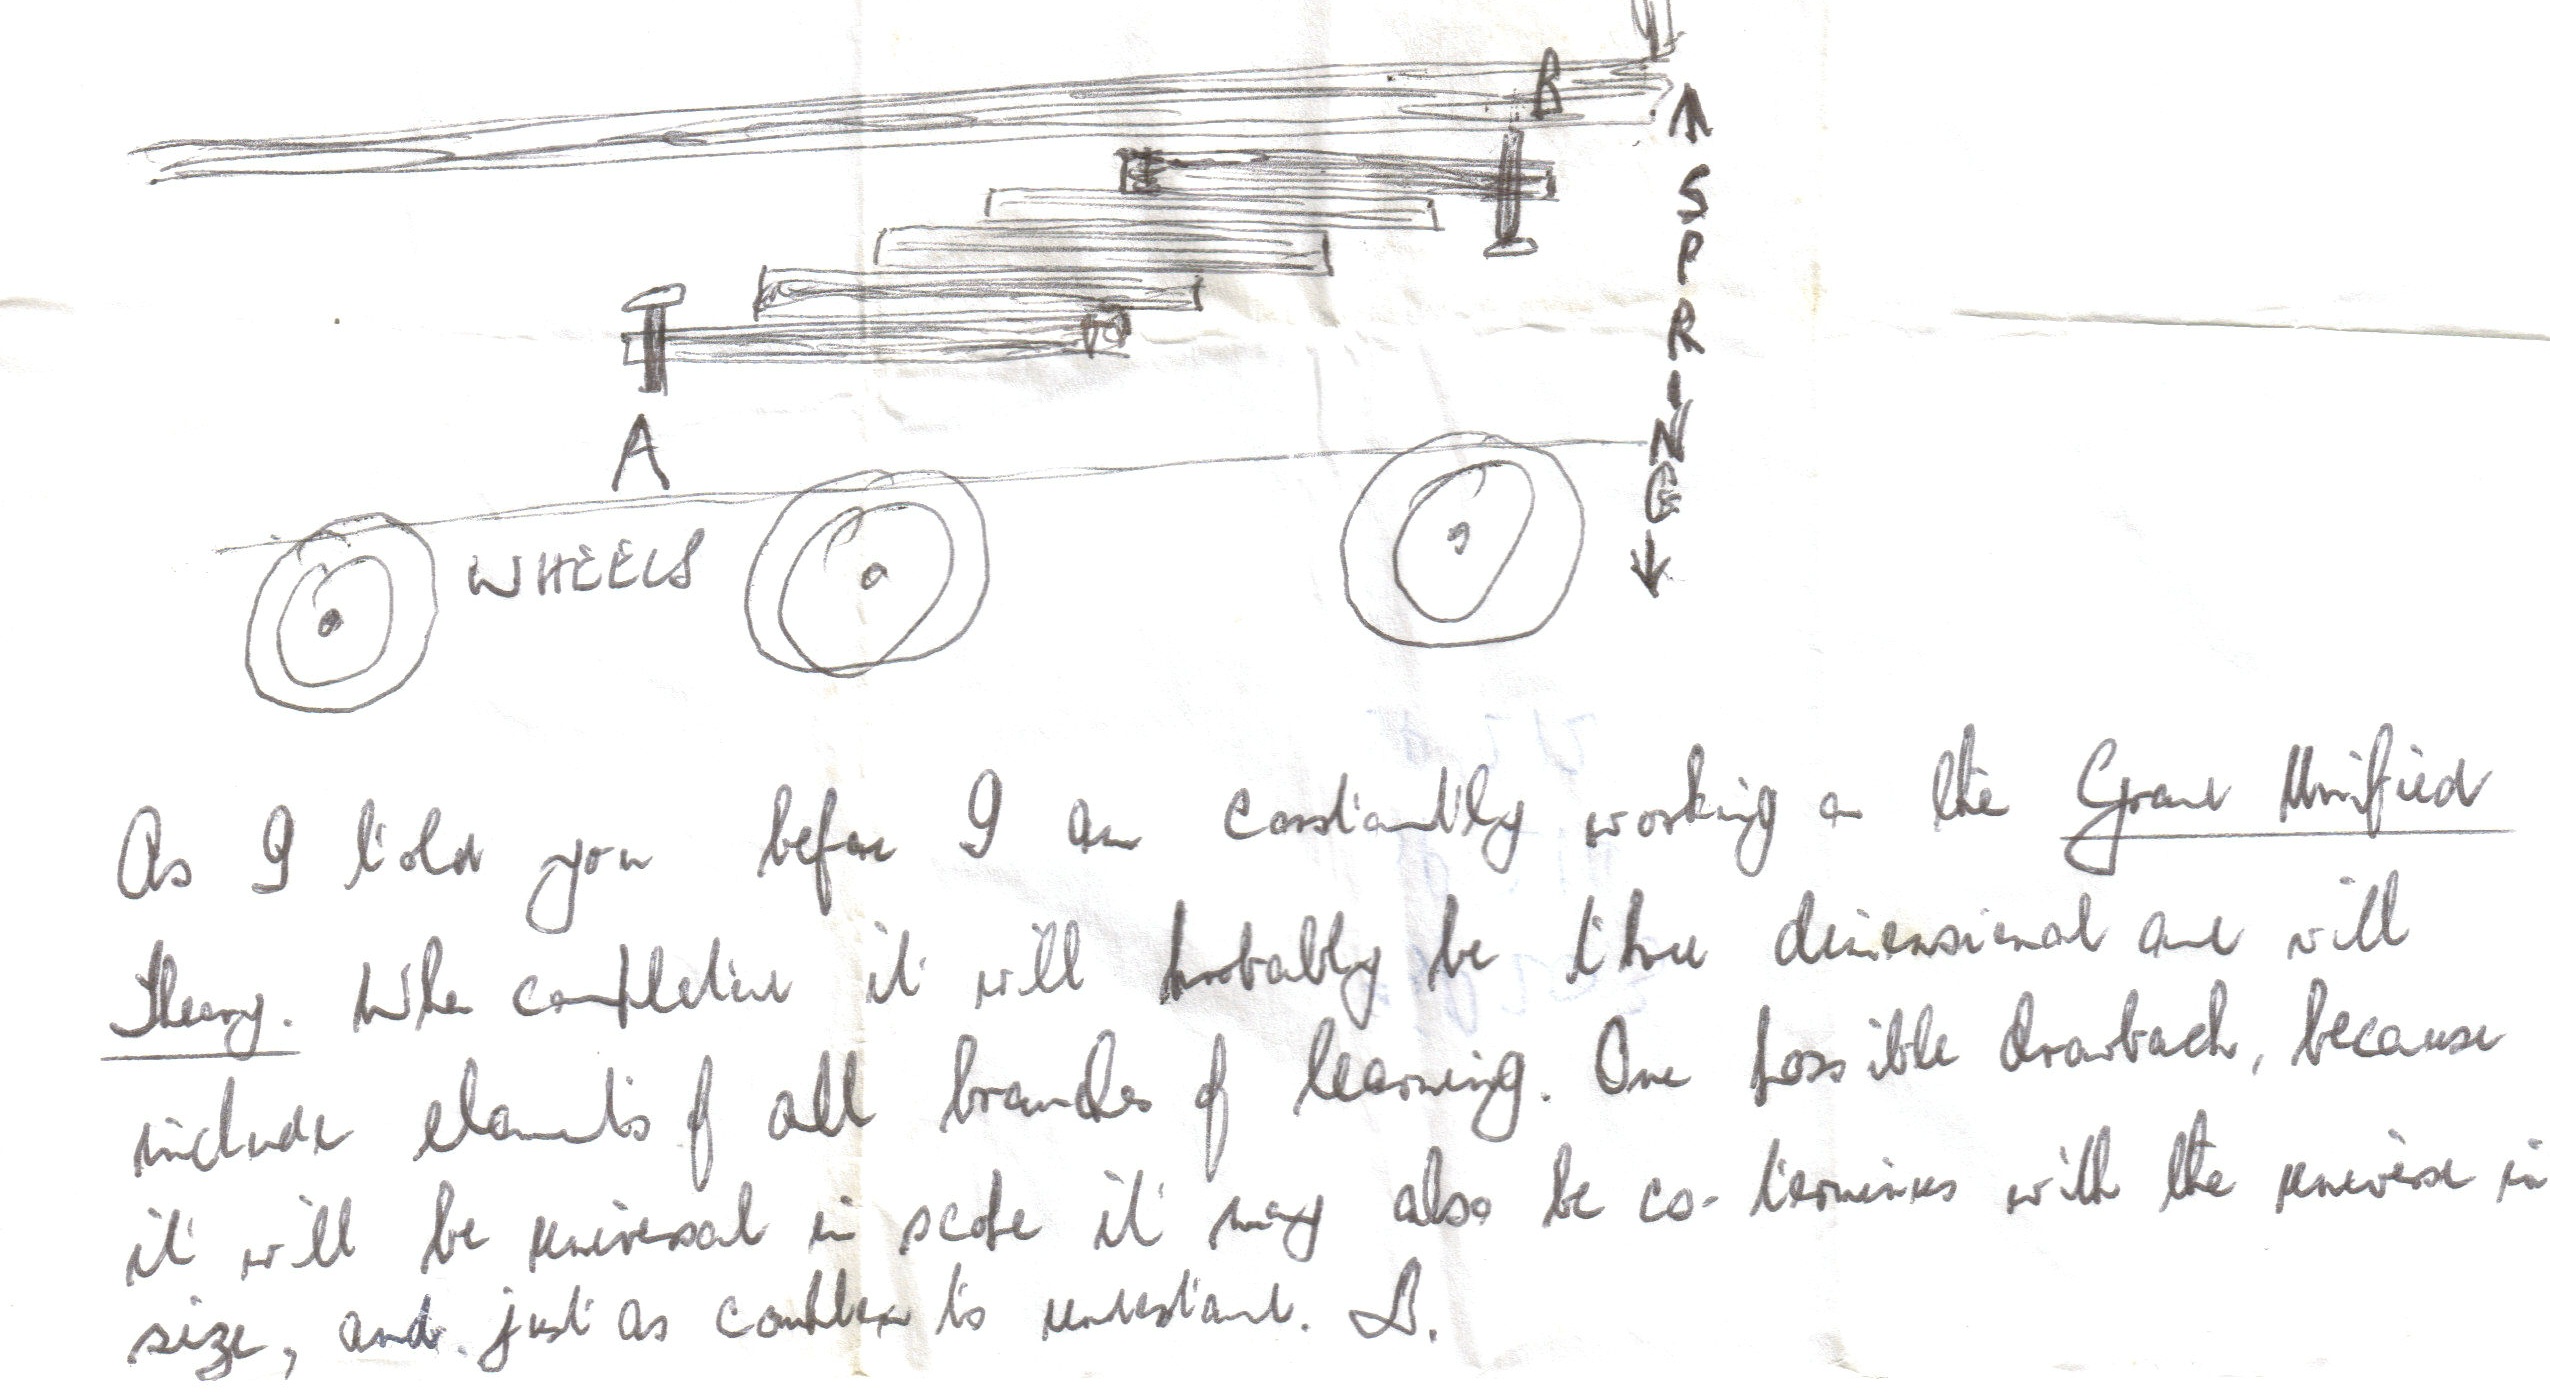 B
↑ SPRING ↓
A
WHEELS
As I told you before I am constantly working on the Grand Unified
Theory. When completed it will probably be three dimensional and will
include elements of all branches of learning. One possible drawback, because
it will be universal in scope it may also be co-terminus with the universe in
size, and just as complex to understand.